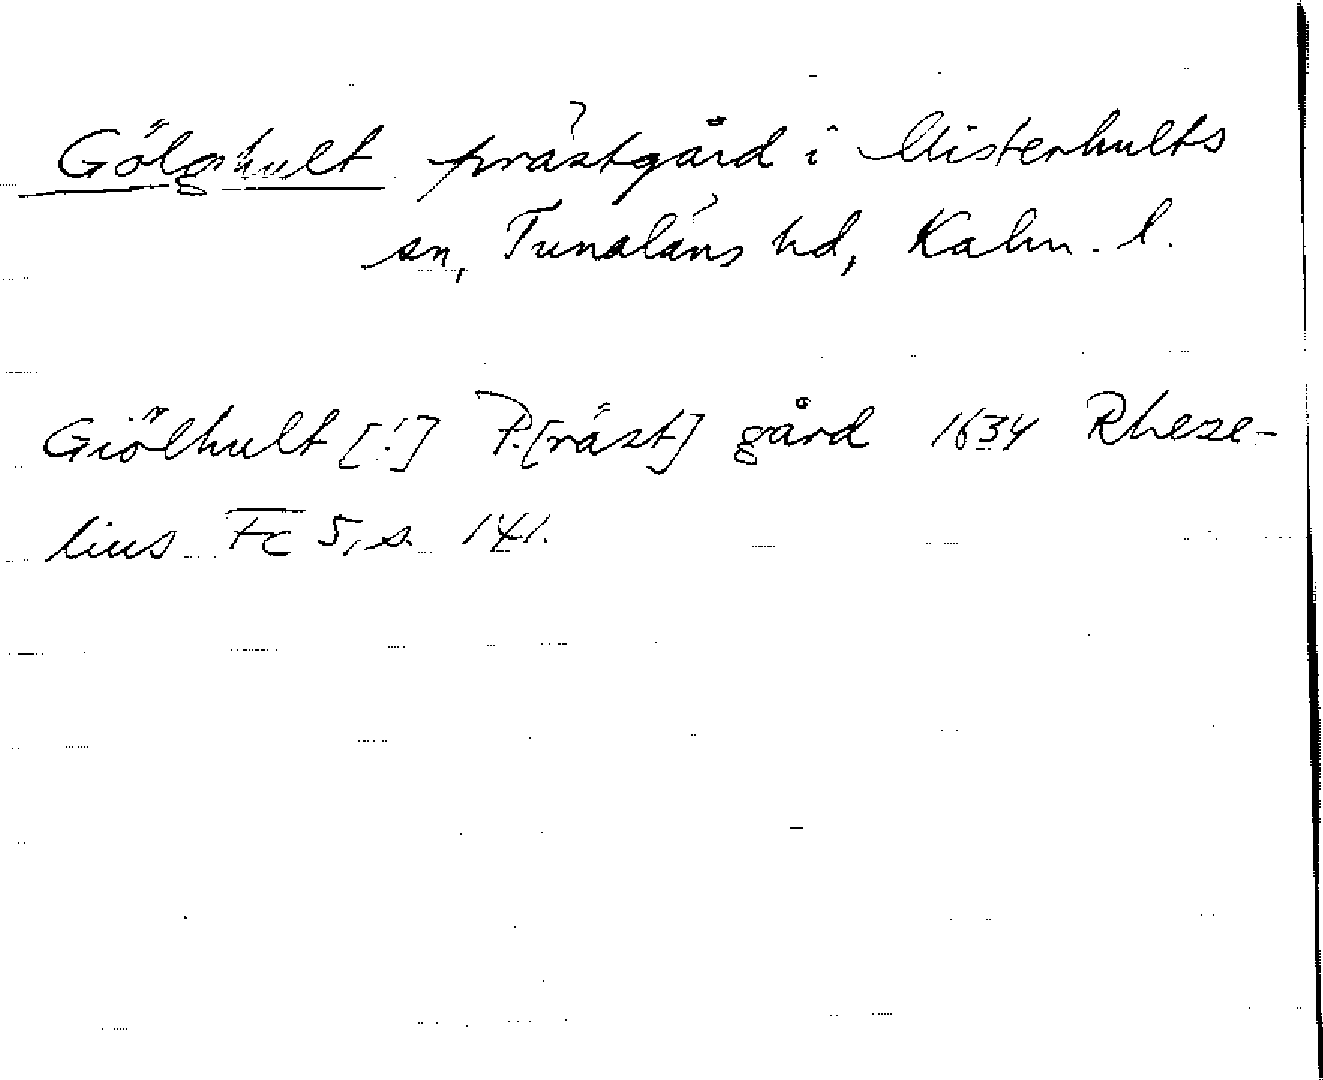 Gölghult prästgård i Misterhults
sn, Tunaläns hd, Kalm. l.
Giölhult [!] P.[räst] gård 1634 Rheze-
lius Fc 5, s. 141.